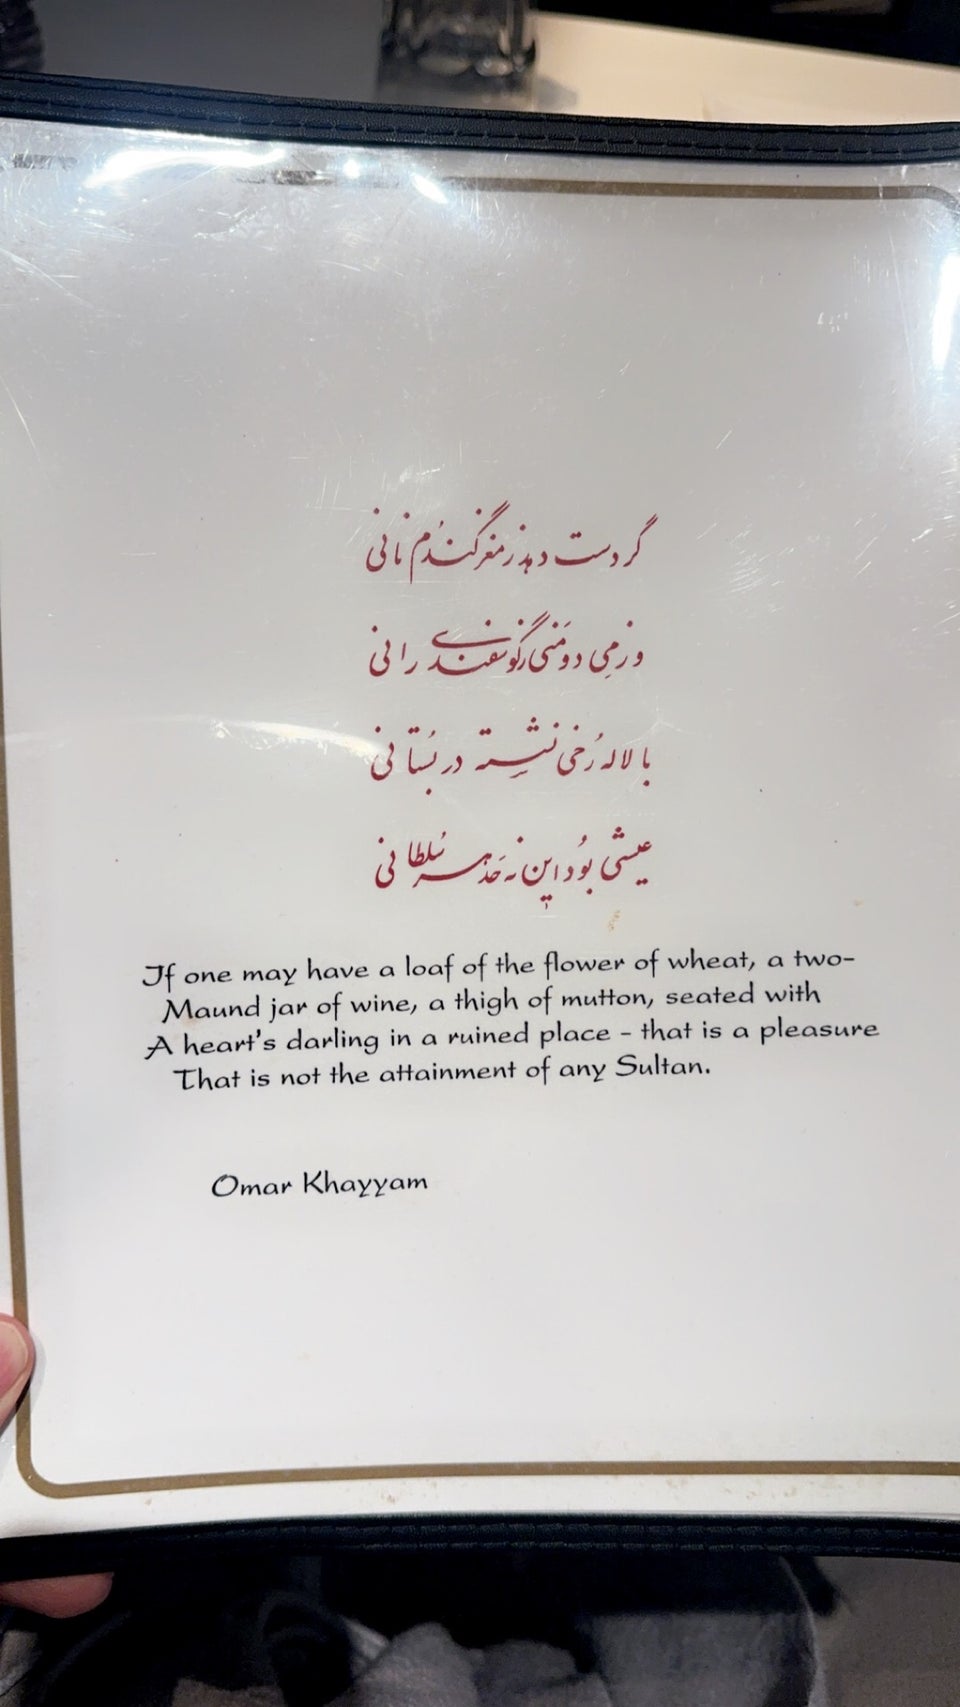 گر دست دهد ز مغز گندُم نانی
وز مِی دو مَنی ز گوسفندی رانی
با لاله رُخی نشِسته در بُستانی
عیشی بُود این نه حَدِ هر سُلطانی
If one may have a loaf of the flower of wheat, a two-
Maund jar of wine, a thigh of mutton, seated with
A heart's darling in a ruined place - that is a pleasure
That is not the attainment of any Sultan.
Omar Khayyam